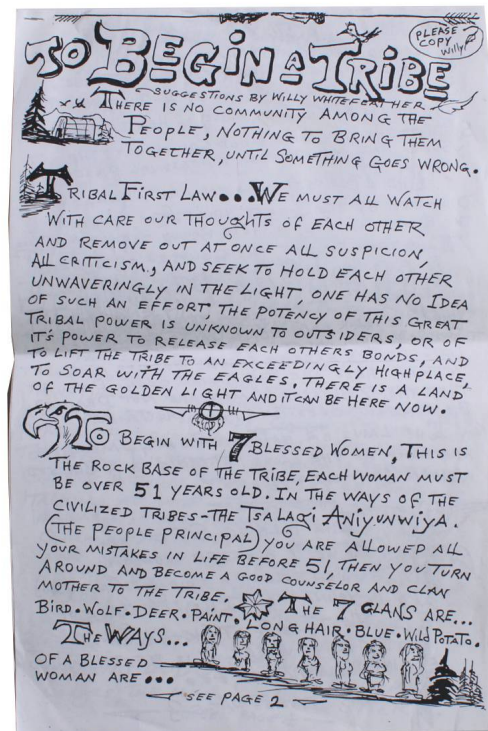 PLEASE
COPY
Willy
TO BEGIN A TRIBE
SUGGESTIONS BY WILLY WHITEFEATHER
THERE IS NO COMMUNITY AMONG THE
PEOPLE, NOTHING TO BRING THEM
TOGETHER, UNTIL SOMETHING GOES WRONG.
TRIBAL FIRST LAW... WE MUST ALL WATCH
WITH CARE OUR THOUGHTS OF EACH OTHER
AND REMOVE OUT AT ONCE ALL SUSPICION,
ALL CRITICISM, AND SEEK TO HOLD EACH OTHER
UNWAVERINGLY IN THE LIGHT, ONE HAS NO IDEA
OF SUCH AN EFFORT, THE POTENCY OF THIS GREAT
TRIBAL POWER IS UNKNOWN TO OUTSIDERS, OR OF
IT'S POWER TO RELEASE EACH OTHERS BONDS, AND
TO LIFT THE TRIBE TO AN EXCEEDINGLY HIGH PLACE,
TO SOAR WITH THE EAGLES, THERE IS A LAND
OF THE GOLDEN LIGHT AND IT CAN BE HERE NOW.
TO BEGIN WITH 7 BLESSED WOMEN, THIS IS
THE ROCK BASE OF THE TRIBE, EACH WOMAN MUST
BE OVER 51 YEARS OLD. IN THE WAYS OF THE
CIVILIZED TRIBES-THE TSALAGI ANIYUNWIYA.
(THE PEOPLE PRINCIPAL) YOU ARE ALLOWED ALL
YOUR MISTAKES IN LIFE BEFORE 51, THEN YOU TURN
AROUND AND BECOME A GOOD COUNSELOR AND CLAN
MOTHER TO THE TRIBE. THE 7 CLANS ARE...
BIRD. WOLF. DEER. PAINT. LONG HAIR. BLUE. WILD POTATO.
THE WAYS...
OF A BLESSED
WOMAN ARE...
SEE PAGE 2